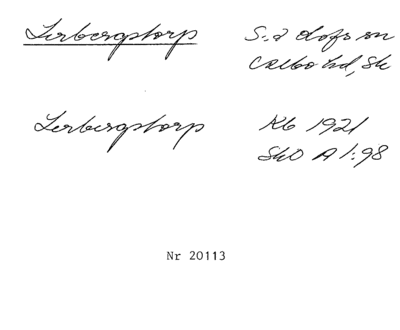 Lerbergstorp S:a dofs sn
Oxebo hd, Sk
Lerbergstorp Kb 1921
SkO A 1:98
Nr 20113